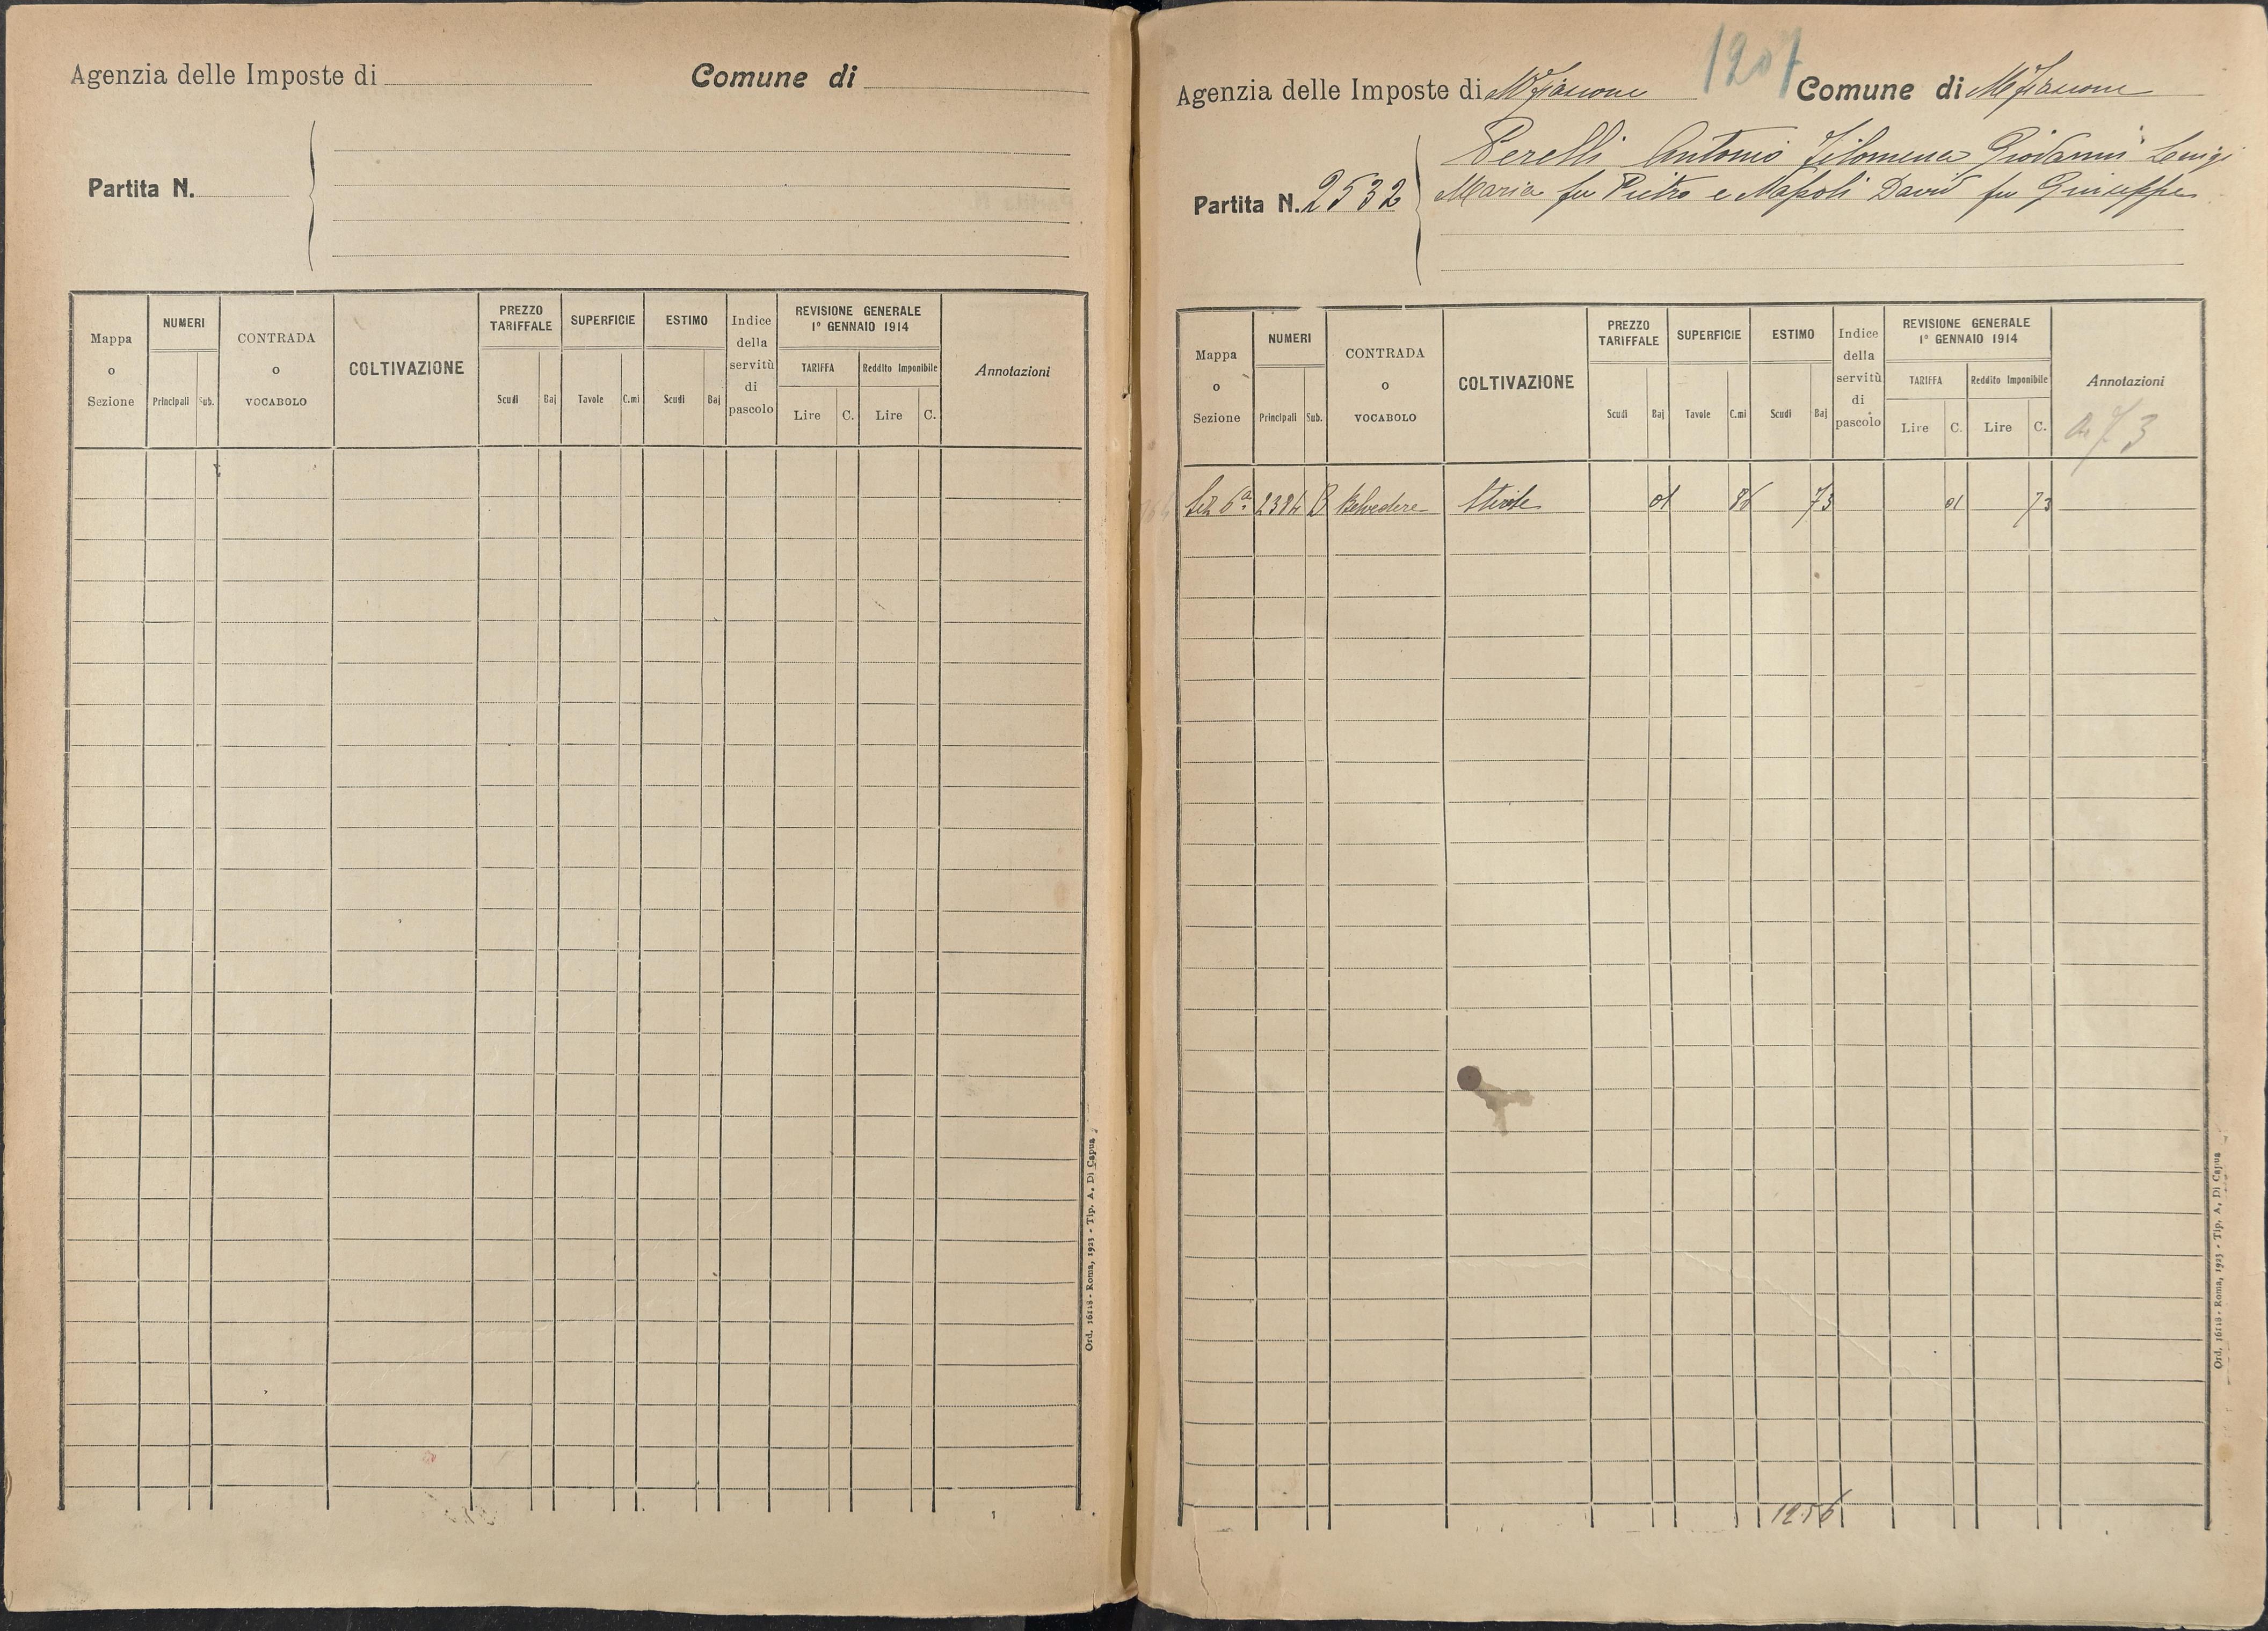 Agenzia delle Imposte di
Comune di
Partita N.
Mappa o Sezione
NUMERI
Principali Sub.
CONTRADA o VOCABOLO
COLTIVAZIONE
PREZZO TARIFFALE
Scudi Baj
SUPERFICIE
Tavole C.mi
ESTIMO
Scudi Baj
Indice della servitù di pascolo
REVISIONE GENERALE
1° GENNAIO 1914
TARIFFA
Lire C.
Reddito Imponibile
Lire C.
Annotazioni
Ord. 16118 - Roma, 1923 - Tip. A. Di Capua
1
1207
Agenzia delle Imposte di Mfiascone Comune di Mfiascone
Perelli Antonio Filomena Giovanni Luigi
Partita N. 2532 Maria fu Pietro e Napoli David fu Giuseppe
Mappa o Sezione
NUMERI
Principali Sub.
CONTRADA o VOCABOLO
COLTIVAZIONE
PREZZO TARIFFALE
Scudi Baj
SUPERFICIE
Tavole C.mi
ESTIMO
Scudi Baj
Indice della servitù di pascolo
REVISIONE GENERALE
1° GENNAIO 1914
TARIFFA
Lire C.
Reddito Imponibile
Lire C.
Annotazioni
Sez 6ª 2384 B Belvedere 01 86 73 01 73
1256
Ord. 16118 - Roma, 1923 - Tip. A. Di Capua